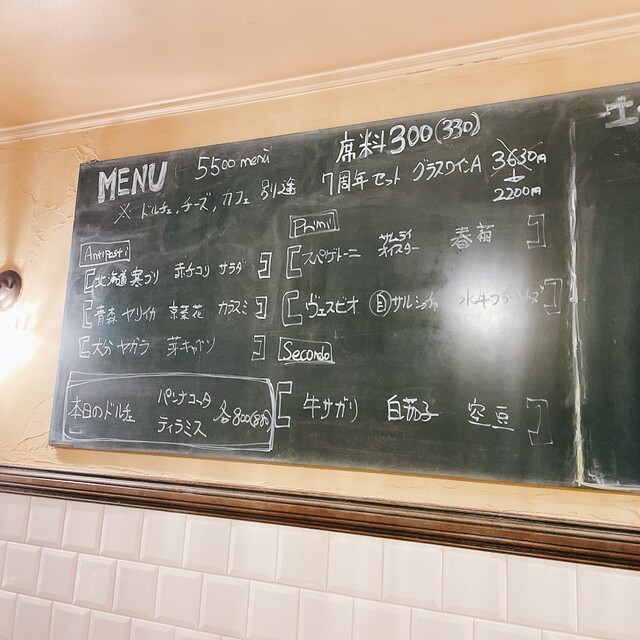 MENU 5500 menù 席料300(330)
※ ドルチェ、チーズ、カフェ 別途
7周年セット グラスワインA 3630円
2200円
Antipasti
北海道寒ブリ 赤チコリ サラダ
青森 ヤリイカ 京菜花 カラスミ
大分 ヤガラ 芽キャベツ
本日のドルチェ パンナコッタ
ティラミス 各800(880)
Primi
スパゲトーニ サムライオイスター 春菊
ヴェスビオ 自サルシッチャ 水牛
Secondo
牛サガリ 白茄子 空豆
土